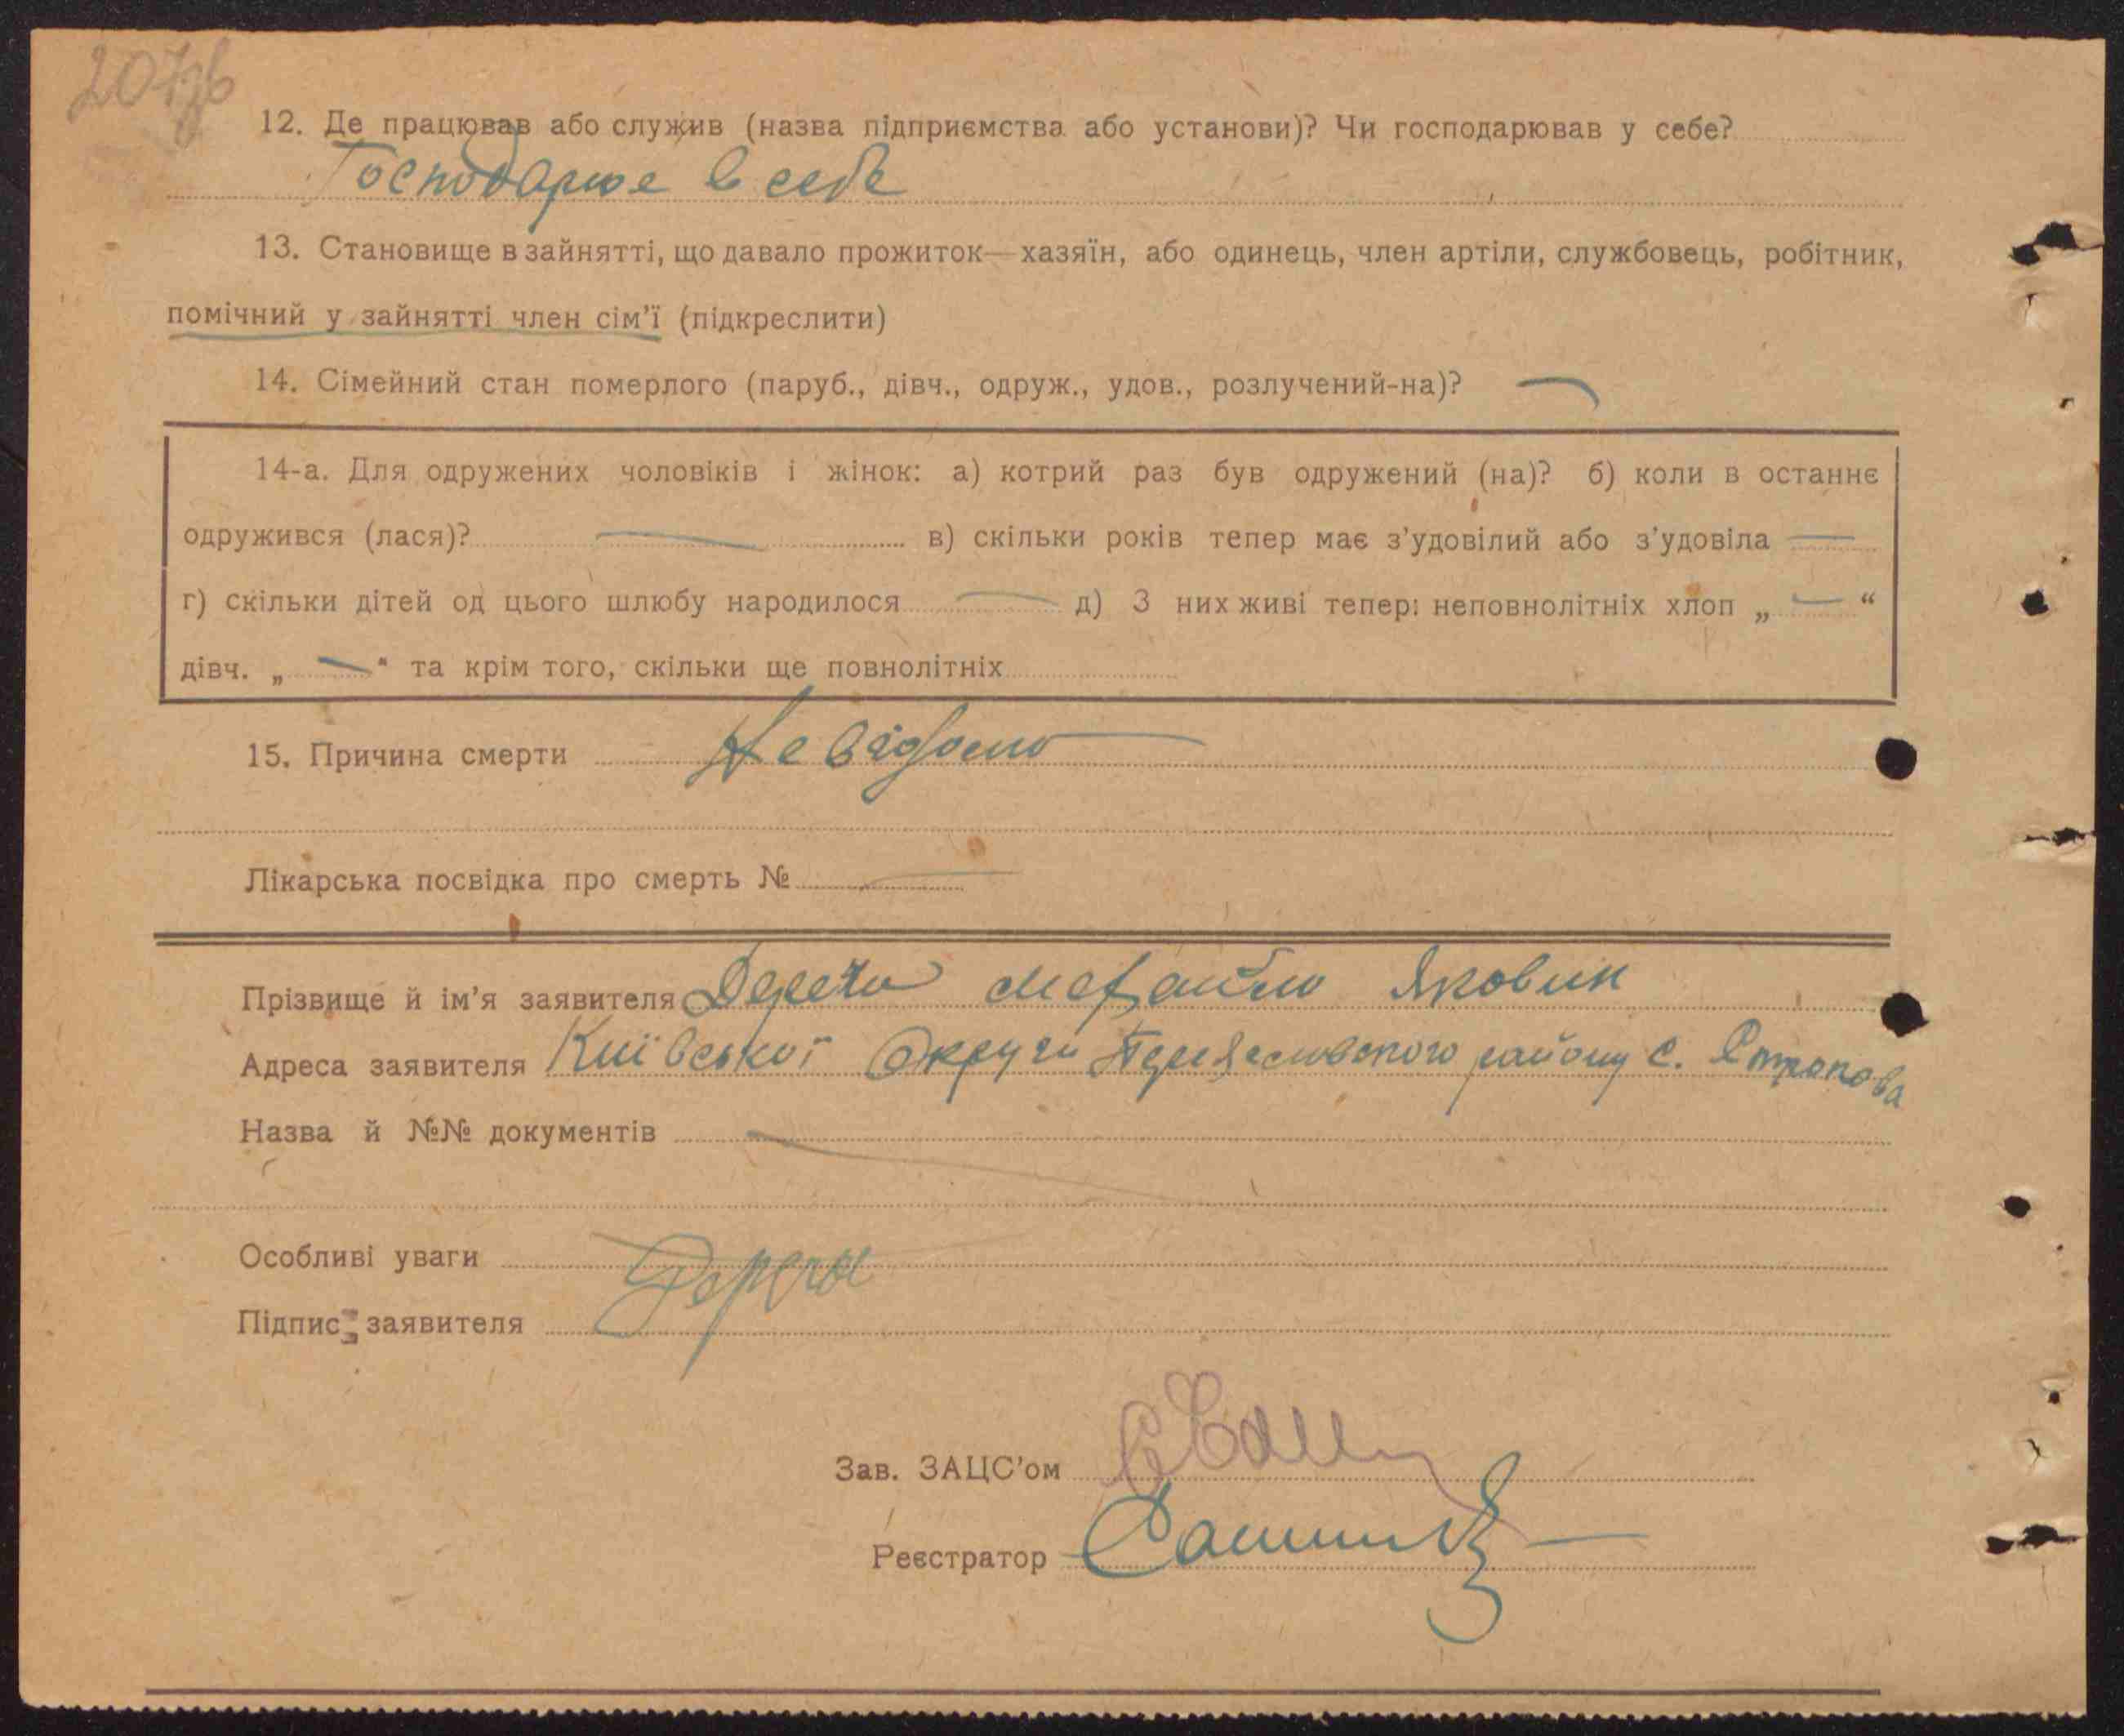 12. Де працював або служив (назва підприємства або установи)? Чи господарював у себе?
Господарює в себе
13. Становище в зайнятті, що давало прожиток—хазяїн, або одинець, член артіли, службовець, робітник,
помічний у зайнятті член сім'ї (підкреслити)
14. Сімейний стан померлого (паруб., дівч., одруж., удов., розлучений-на)? —
14-а. Для одружених чоловіків і жінок: а) котрий раз був одружений (на)? б) коли в останнє
одружився (лася)? — в) скільки років тепер має з'удовілий або з'удовіла —
г) скільки дітей од цього шлюбу народилося — д) З них живі тепер: неповнолітніх хлоп „ — “
дівч. „ — “ та крім того, скільки ще повнолітніх
15. Причина смерти Невідомо
Лікарська посвідка про смерть № —
Прізвище й ім'я заявителя Яковин
Адреса заявителя Київської Округи району с.
Назва й №№ документів —
Особливі уваги
Підпис заявителя
Зав. ЗАЦС'ом
Реєстратор